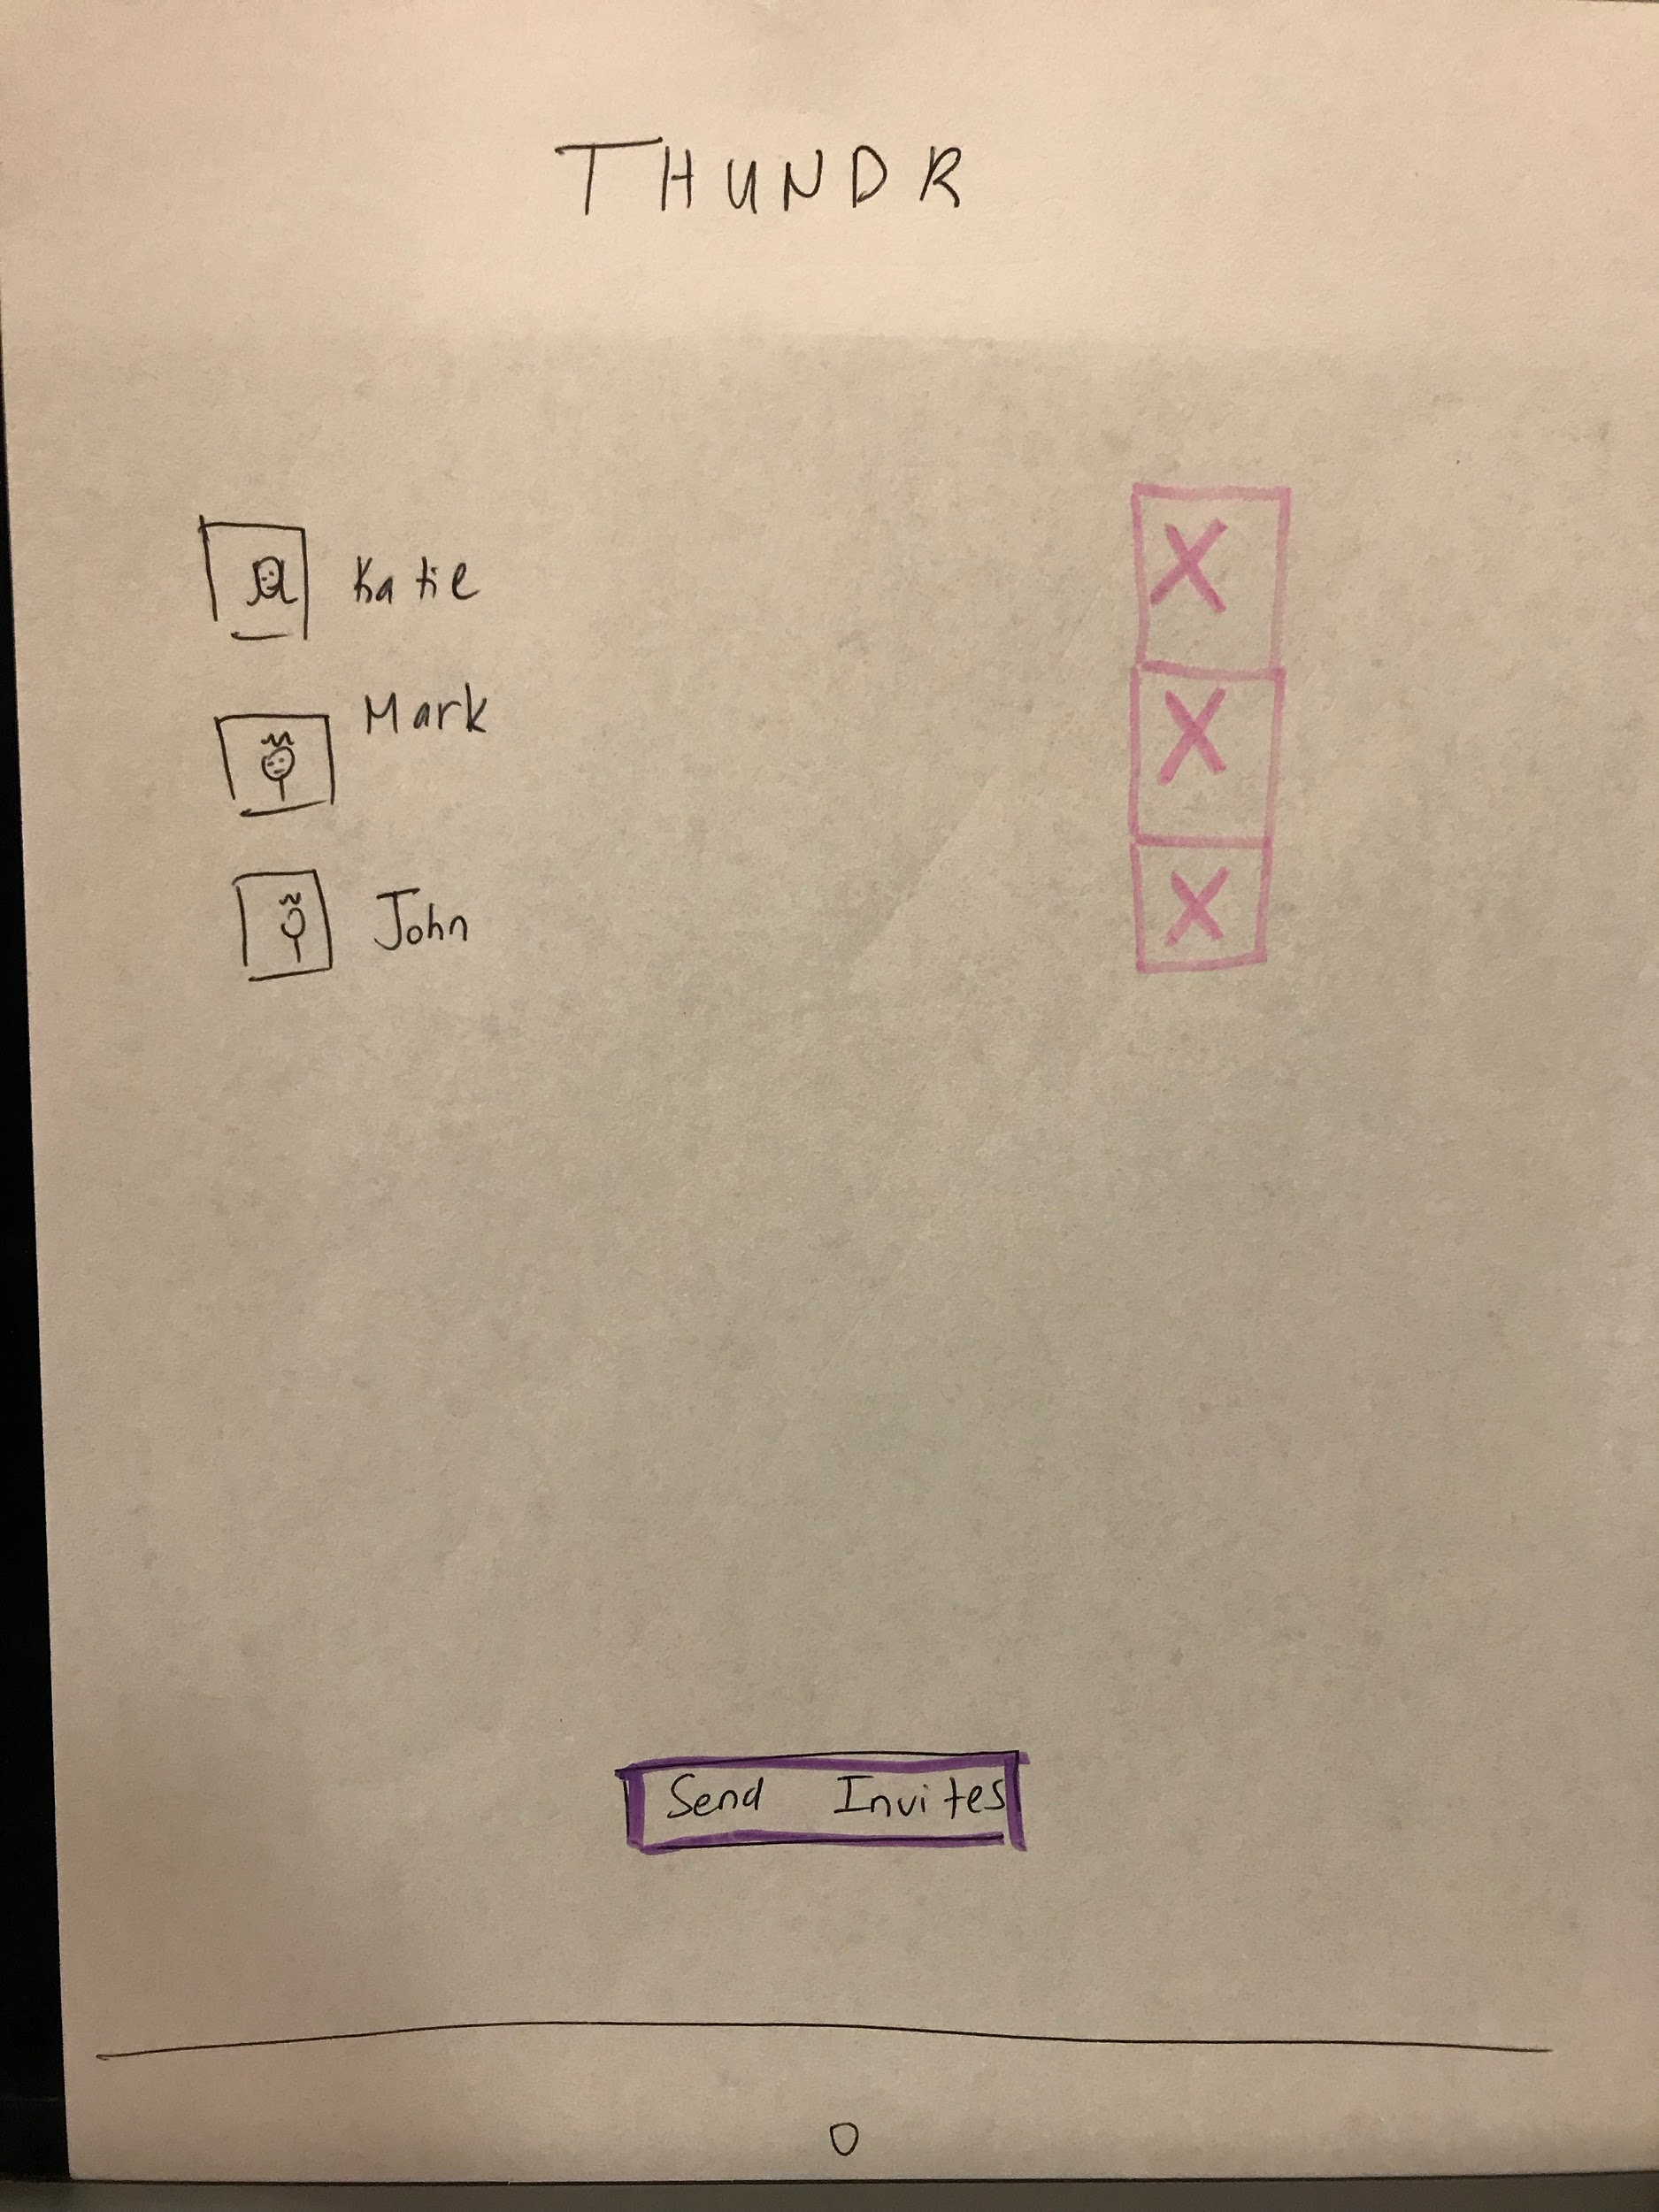 THUNDR
Katie
X
Mark
X
John
X
Send Invites